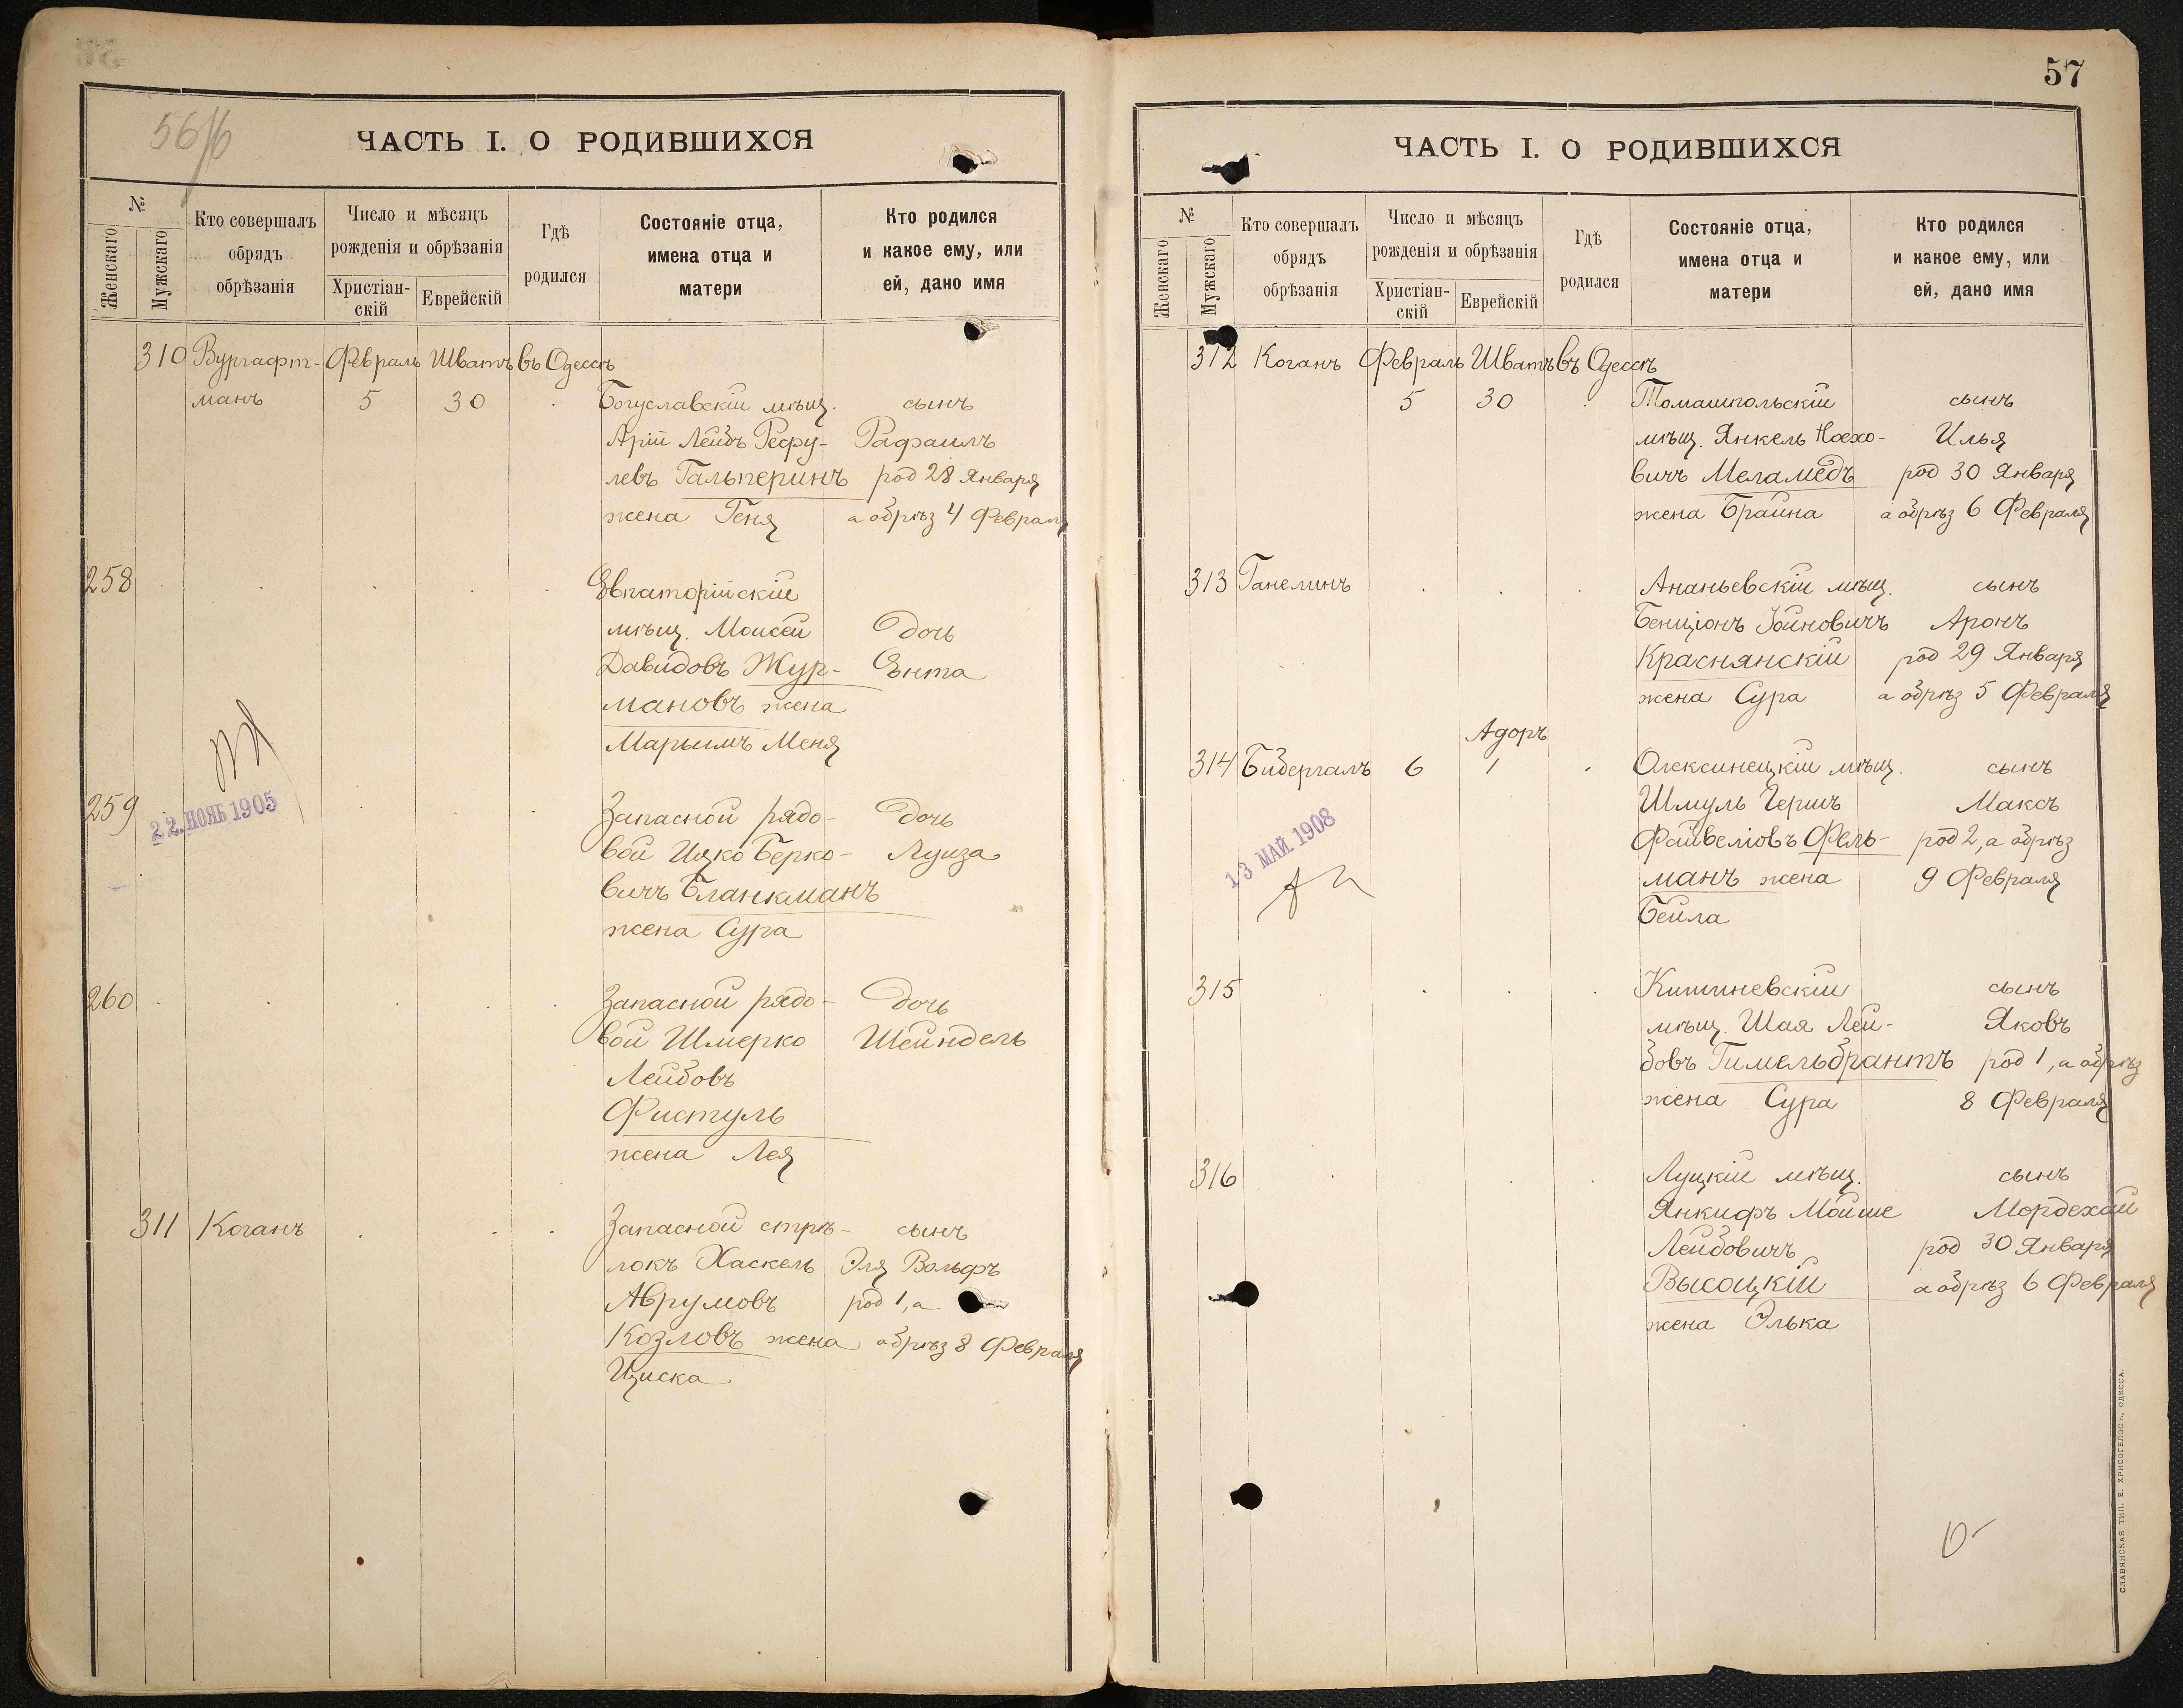 56/6
ЧАСТЬ I. О РОДИВШИХСЯ
№
Женскаго
Мужскаго
Кто совершалъ
обрядъ
обрѣзанія
Число и мѣсяцъ
рожденія и обрѣзанія
Христіан-
скій
Еврейскій
Гдѣ
родился
Состояніе отца,
имена отца и
матери
Кто родился
и какое ему, или
ей, дано имя
310 Вургафт- Февраль Шватъ въ Одессѣ
манъ 5 30 Богуславскій мѣщ. сынъ
Арій Лейбъ Рефу- Рафаилъ
левъ Гальперинъ род 28 Января
жена Геня а обрѣз 4 Февраля
258 Евпаторійскій
мѣщ. Моисей Дочь
Давидовъ Жур- Ента
мановъ жена
Марьимъ Меня
259 Запасной рядо- Дочь
22. НОЯБ 1905
вой Ицко Берко- Луиза
вичъ Бланкманъ
жена Сура
260 Запасной рядо- Дочь
вой Шмерко Шейндель
Лейбовъ
Фистуль
жена Лея
311 Коганъ Запасной стрѣ- сынъ
локъ Хаскель Эля Вольфъ
Аврумовъ род 1, а
Козловъ жена обрѣз 8 Февраля
Циска
57
ЧАСТЬ I. О РОДИВШИХСЯ
№
Женскаго
Мужскаго
Кто совершалъ
обрядъ
обрѣзанія
Число и мѣсяцъ
рожденія и обрѣзанія
Христіан-
скій
Еврейскій
Гдѣ
родился
Состояніе отца,
имена отца и
матери
Кто родился
и какое ему, или
ей, дано имя
312 Коганъ Февраль Шватъ въ Одессѣ
5 30 Томашпольскій сынъ
мѣщ. Янкель Ноехо- Илья
вичъ Меламедъ род 30 Января
жена Брайна а обрѣз 6 Февраля
313 Ганелинъ Ананьевскій мѣщ. сынъ
Бенціонъ Іойновичъ Аронъ
Краснянскій род 29 Января
жена Сура а обрѣз 5 Февраля
Адоръ
314 Бибергалъ 6 1 Олексинецкій мѣщ. сынъ
Шмуль Гершъ Максъ
13 МАЙ 1908
Файвеліовъ Фель- род 2, а обрѣз
манъ жена 9 Февраля
Бейла
315 Кишиневскій сынъ
мѣщ. Шая Лей- Яковъ
бовъ Гимельбрантъ род 1, а обрѣз
жена Сура 8 Февраля
316 Луцкій мѣщ. сынъ
Янкифъ Мойше Мордехай
Лейбовичъ род 30 Января
Высоцкій а обрѣз 6 Февраля
жена Элька
СЛАВЯНСКАЯ ТИП. Е. ХРИСОГЕЛОСЪ, ОДЕССА.